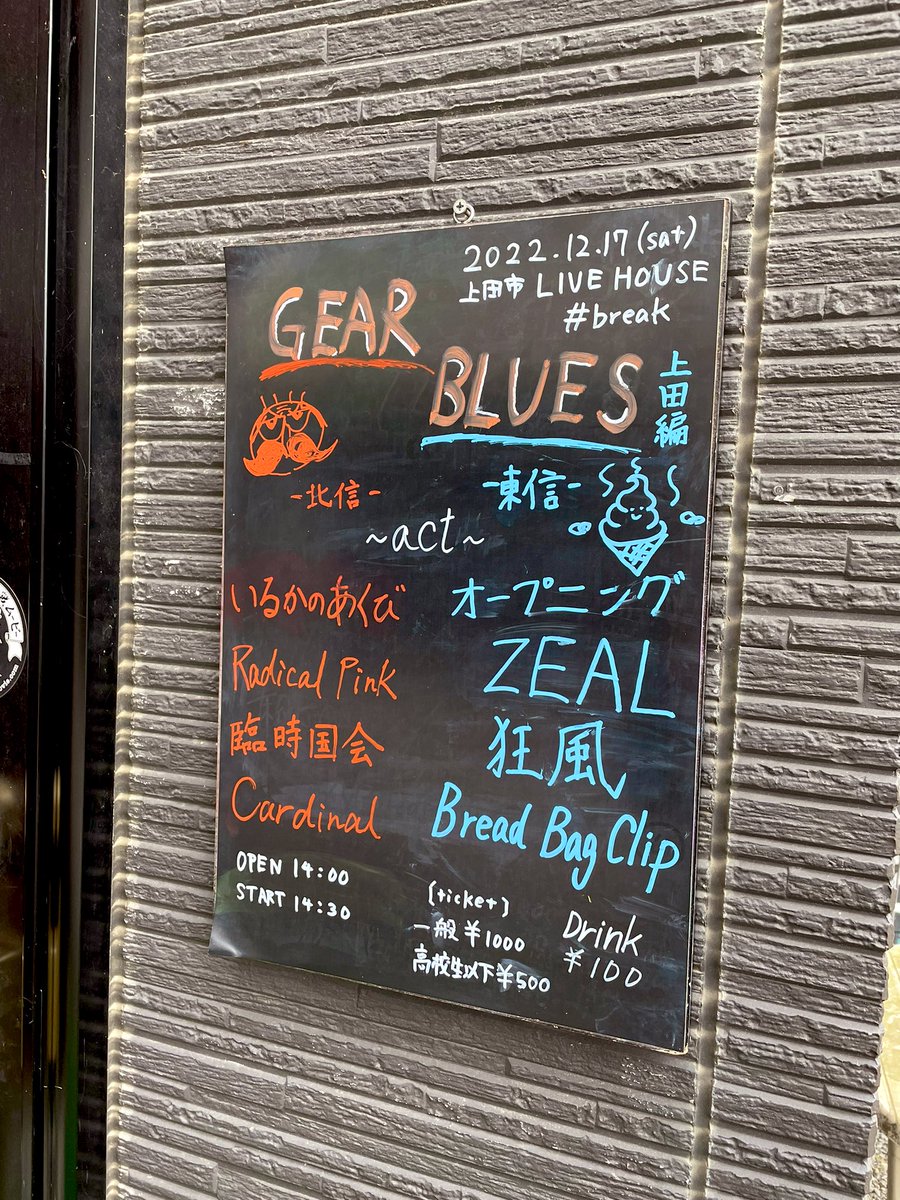 2022.12.17(sat)
上田市 LIVE HOUSE
#break
GEAR
BLUES
上田編
-北信-
-東信-
~act~
いるかのあくび
Radical Pink
臨時国会
Cardinal
オープニング
ZEAL
狂風
Bread Bag Clip
OPEN 14:00
START 14:30
[ticket]
一般¥1000
高校生以下¥500
Drink
¥100